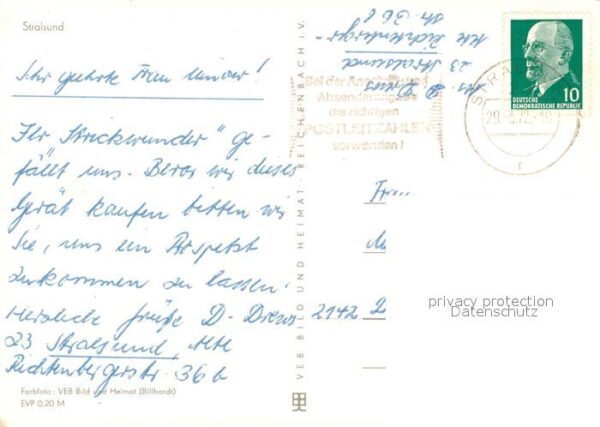 Stralsund
Sehr geehrte Frau
Ihr Strickwunder" ge-
fällt uns. Bevor wir dieses
Gerät kaufen bitten wir
Sie, uns ein Prospekt
zukommen zu lassen.
Herzliche Grüße D. Drews
23 Stralsund, Alte
Richtenbergerstr. 36 b
Farbfoto: VEB Bild und Heimat (Billhardt)
EVP 0,20 M
VEB BILD UND HEIMAT REICHENBACH I. V.
Abs. D. Drews
23 Stralsund
Alte Richtenberger-
str. 36 b
Bei der Anschrift und
Absenderangabe
die richtigen
POSTLEITZAHLEN
verwenden!
10
DEUTSCHE
DEMOKRATISCHE REPUBLIK
Frau
2142
privacy protection
Datenschutz